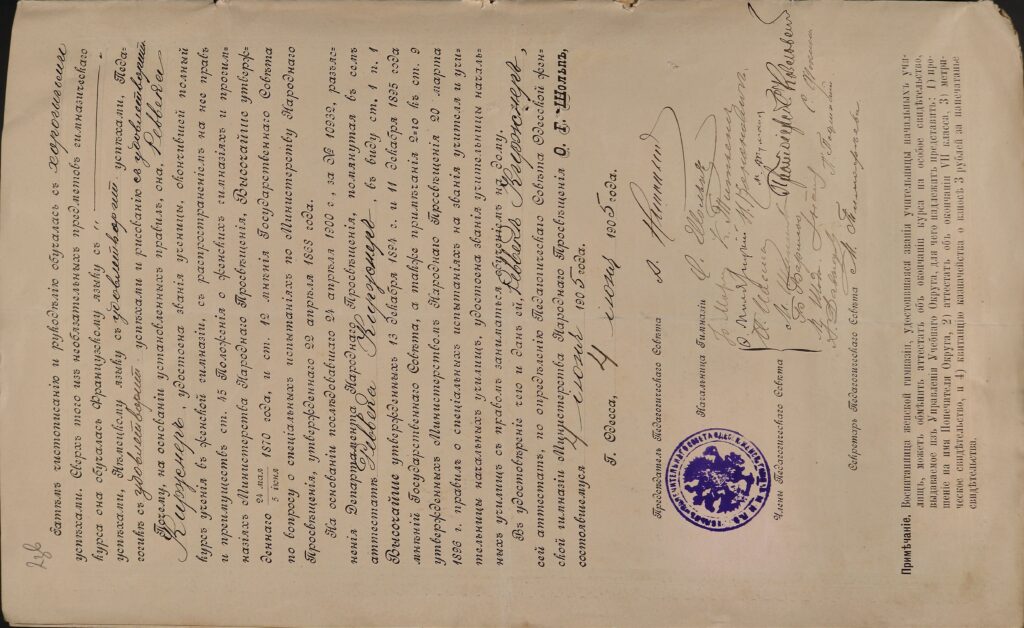 батъ чистописанію и рукодѣлію обучалась съ хорошими
успѣхами. Сверхъ того изъ необязательныхъ предметовъ гимназическаго
курса она обучалась Французскому языку съ
успѣхами, Нѣмецкому языку съ удовлетворит. успѣхами, Педа-
гогикѣ съ удовлетворит. успѣхами и рисованію съ удовлетворит.
Посему, на основаніи установленныхъ правилъ, она, Реввека
Киржнеръ, удостоена званія ученицы, окончившей полный
курсъ ученія въ женской гимназіи, съ распространеніемъ на нее правъ
и преимуществъ ст. 45 Положенія о женскихъ гимназіяхъ и прогим-
назіяхъ Министерства Народнаго Просвѣщенія, Высочайше утверж-
деннаго 24 мая / 5 іюня 1870 года, и ст. 12 мнѣнія Государственнаго Совѣта
по вопросу о спеціальныхъ испытаніяхъ по Министерству Народнаго
Просвѣщенія, утвержденнаго 22 апрѣля 1868 года.
На основаніи послѣдовавшаго 24 апрѣля 1900 г., за № 10932, разъяс-
ненія Департамента Народнаго Просвѣщенія, помянутая въ семъ
аттестатѣ Реввека Киржнеръ, въ виду ст. 1 п. 1
Высочайше утвержденныхъ 13 декабря 1894 г. и 11 декабря 1895 года
мнѣній Государственнаго Совѣта, а также примѣчанія 2-го къ ст. 9
утвержденныхъ Министерствомъ Народнаго Просвѣщенія 20 марта
1896 г. правилъ о спеціальныхъ испытаніяхъ на званія учителя и учи-
тельницы начальныхъ училищъ, удостоена званія учительницы началь-
ныхъ училищъ съ правомъ заниматься обученіемъ на дому.
Въ удостовѣреніе чего и данъ ей, Реввекѣ Киржнеръ,
сей аттестатъ, по опредѣленію Педагогическаго Совѣта Одесской жен-
ской гимназіи Министерства Народнаго Просвѣщенія О. Г. Шольпъ,
состоявшемуся 4 іюня 1905 года.
Г. Одесса, 4 іюня 1905 года.
Предсѣдатель Педагогическаго Совѣта
Начальница Гимназіи О. Шольпъ
Члены Педагогическаго Совѣта
Секретарь Педагогическаго Совѣта
Примѣчаніе. Воспитанница женской гимназіи, удостоившаяся званія учительницы начальныхъ учи-
лищъ, можетъ обмѣнять аттестатъ объ окончаніи курса на особое свидѣтельство,
выдаваемое изъ Управленія Учебнаго Округа, для чего надлежитъ представить: 1) про-
шеніе на имя Попечителя Округа, 2) аттестатъ объ окончаніи VII класса, 3) метри-
ческое свидѣтельство, и 4) квитанцію казначейства о взносѣ 3 рублей за напечатаніе
свидѣтельства.